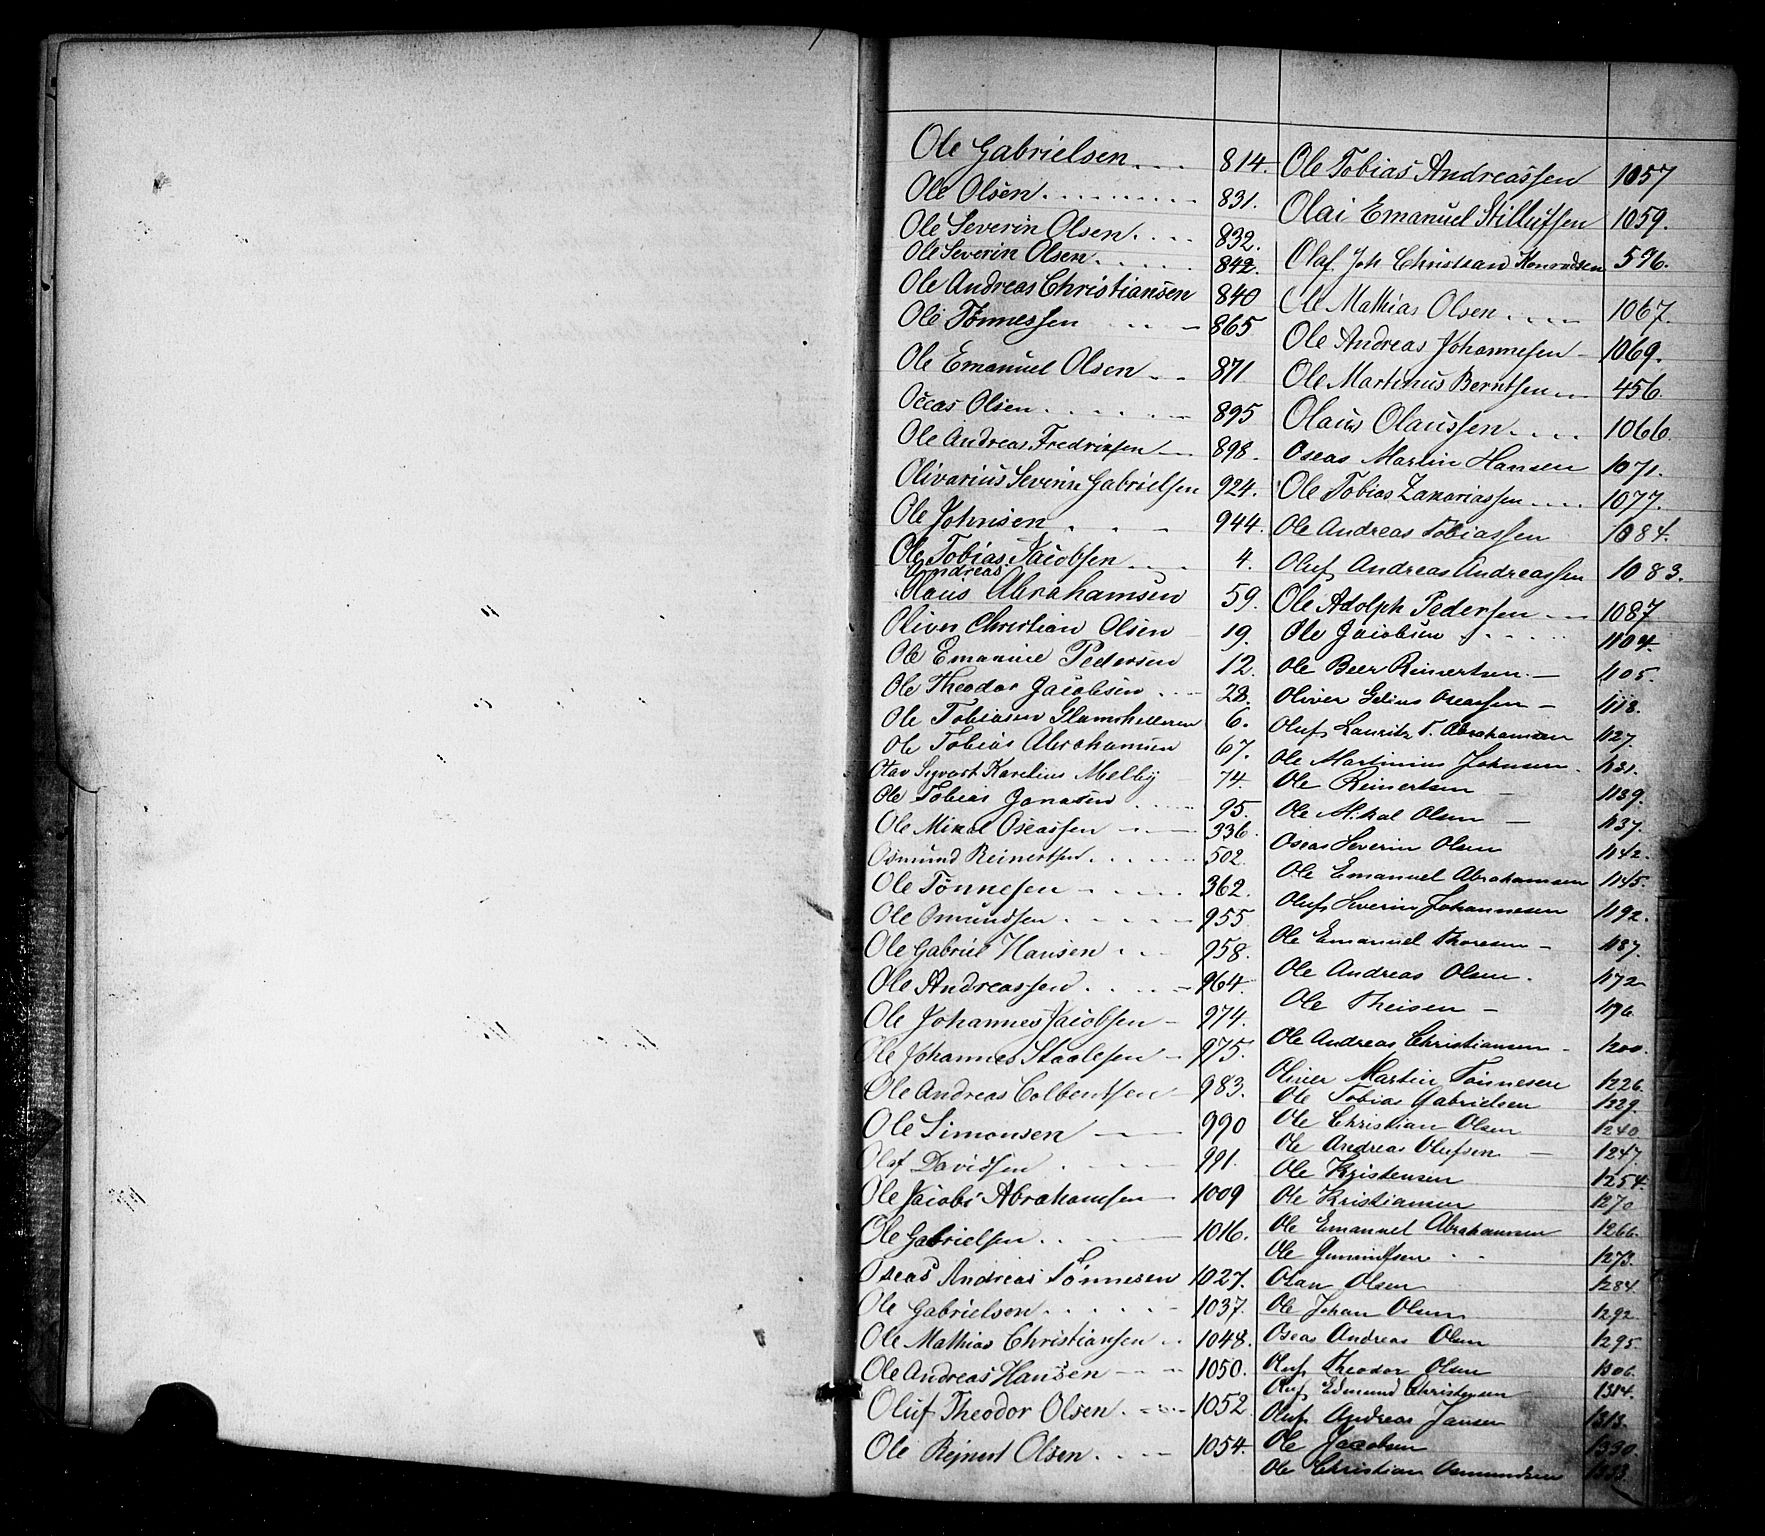 Ole Gabrielsen 814.
Ole Olsen 831.
Ole Severin Olsen 832.
Ole Severin Olsen 842.
Ole Andreas Christiansen 840
Ole Tønnessen 865
Ole Emanuel Olsen 871
Occas Olsen 895
Ole Andreas Fredriksen 898.
Olivarius Severin Gabrielsen 924.
Ole Johnsen 944.
Ole Tobias Jacobsen 4.
Andreas
Olaus Abrahamsen 59.
Oliver Christian Olsen 19.
Ole Emanuel Pedersen 12
Ole Theodor Jacobsen 28.
Ole Tobiasen 6.
Ole Tobias Abrahamsen 67.
Olav Syvert Karelius Melby 74.
Ole Tobias Jonasen 95.
Ole Mikal Oseassen 336.
Osmund Reinertsen 502.
Ole Tønnesen 362.
Ole Omundsen 955.
Ole Gabriel Hansen 958.
Ole Andreassen 964.
Ole Johannes Jacobsen 974.
Ole Johannes Staalesen 975.
Ole Andreas Colbentsen 983.
Ole Simonsen 990
Olaf Davidsen 991.
Ole Jacob Abrahamsen 1009
Ole Gabrielsen 1016.
Oseas Andreas Tønnesen 1027.
Ole Gabrielsen 1037.
Ole Mathias Christiansen 1048.
Ole Andreas Hansen 1050.
Oluf Theodor Olsen 1052
Ole Rejnert Olsen 1054.
Ole Tobias Andreassen 1057
Olai Emanuel 1059.
Olaf Joh Christian Konradsen 596.
Ole Mathias Olsen 1067.
Ole Andreas Johannesen 1069.
Ole Martinus Berntsen 456.
Olaus Olaussen 1066.
Oseas Martin Hansen 1071.
Ole Tobias Zakariassen 1077.
Ole Andreas Tobiassen 1084.
Oluf Andreas Andreassen 1083.
Ole Adolph Pedersen 1087
Ole Jacobsen 1104.
Ole Beer Reinertsen 1105.
Oliver Oseassen 1118.
Oluf Lauritz T. Abrahamsen 1127.
Ole Martinius Johnsen 1131.
Ole Reinertsen 1139.
Ole Mikal Olsen 1137.
Oseas Severin Olsen 1142.
Ole Emanuel Abrahamsen 1145.
Oluf Severin Johannesen 1192.
Ole Emanuel Thoresen 1187.
Ole Andreas Olsen 1172
Ole Theisen 1196
Ole Andreas Christiansen 1200.
Oliver Martin Tønnesen 1226.
Ole Tobias Gabrielsen 1229.
Ole Christian Olsen 1240
Ole Andreas Olufsen 1247
Ole Kristensen 1254.
Ole Kristiansen 1270
Ole Emanuel Abrahamsen 1266.
Ole Gunmundsen 1273.
Olan Olsen 1284.
Ole Johan Olsen 1292.
Oseas Andreas Olsen 1295.
Oluf Theodor Olsen 1306.
Oluf Edmund Christensen 1314.
Oluf Andreas Jansen 1313.
Ole Jacobsen 1330.
Ole Christian Osmundsen 1333.